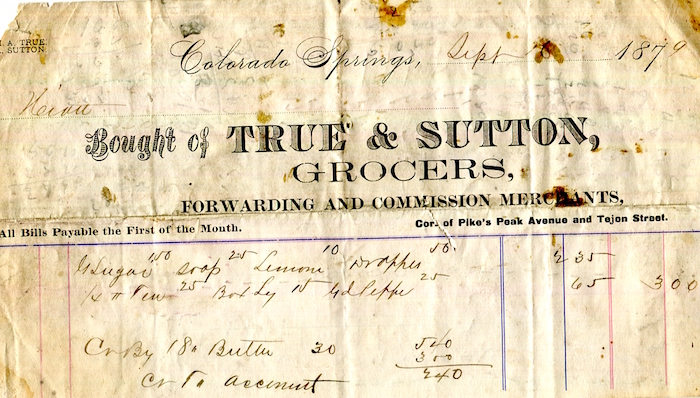 A. TRUE.
SUTTON.
Colorado Springs, Sept 1879
Bought of TRUE & SUTTON,
GROCERS,
FORWARDING AND COMMISSION MERCHANTS,
All Bills Payable the First of the Month.
Cor. of Pike's Peak Avenue and Tejon Street.
Sugar 150 Soap 25 Lemons 10 50 2 35
25 Box 15 25 65 3 00
Cr By 18 Butter 30 540
300
Cr To account 240